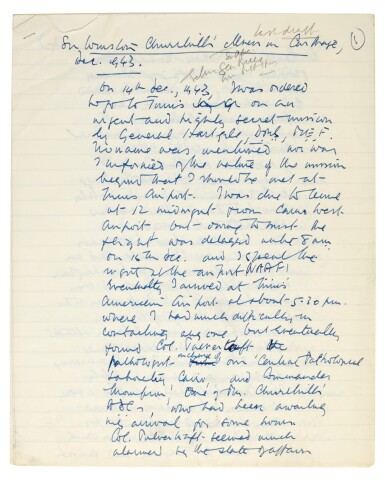 last draft
Sir Winston Churchill's illness in Carthage, 1
Dec. 1943.
On 14th Dec., 1943, I was ordered
to go to Tunis on an
urgent and highly secret mission
by General Hartgill, DMS, M.E.F.
No name was mentioned nor was
I informed of the nature of the mission
beyond that I should be met at
Tunis Airport. I was due to leave
at 12 midnight from Cairo West
Airport but owing to mist the
flight was delayed until 8 am
on 15th Dec. and I spent the
night at the airport NAAFI
Eventually I arrived at Tunis
American Airport at about 5.30 pm.
where I had much difficulty in
contacting any one, but eventually
found Col. Pulvertaft the
pathologist in charge of our Central Pathological
Laboratory Cairo, and Commander
Thompson, one of Mr. Churchill's
ADCs, who had been awaiting
my arrival for some hours
Col. Pulvertaft seemed much
alarmed by the state of affairs